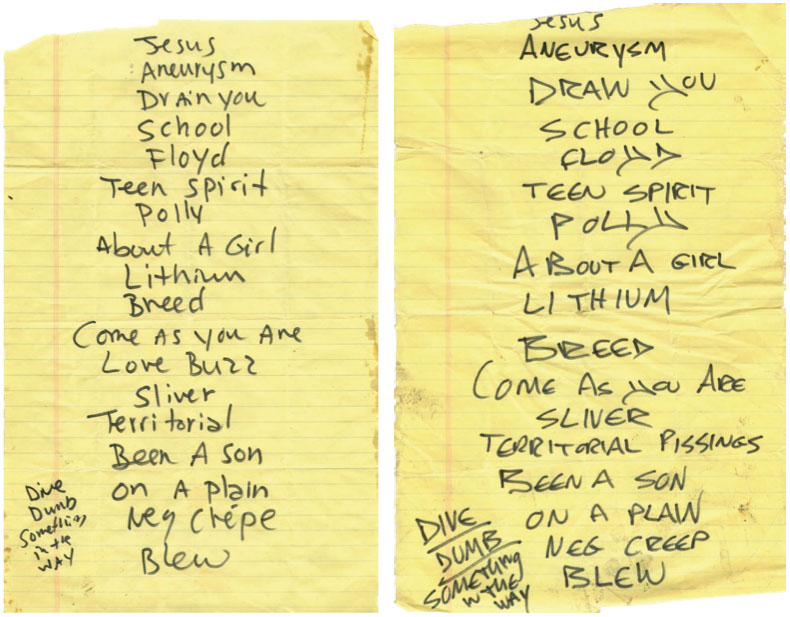 Jesus
Aneurysm
Drain you
School
Floyd
Teen Spirit
Polly
About A Girl
Lithium
Breed
Come As you Are
Love Buzz
Sliver
Territorial
Been A Son
on A plain
Neg Crêpe
Blew
Dive
Dumb
Something
in the
WAY
Jesus
ANEURYSM
DRAW YOU
SCHOOL
FLOYD
TEEN SPIRIT
POLLY
ABOUT A GIRL
LITHIUM
BREED
COME AS YOU ARE
SLIVER
TERRITORIAL PISSINGS
BEEN A SON
ON A PLAIN
NEG CREEP
BLEW
DIVE
DUMB
SOMETHING
W THE
WAY